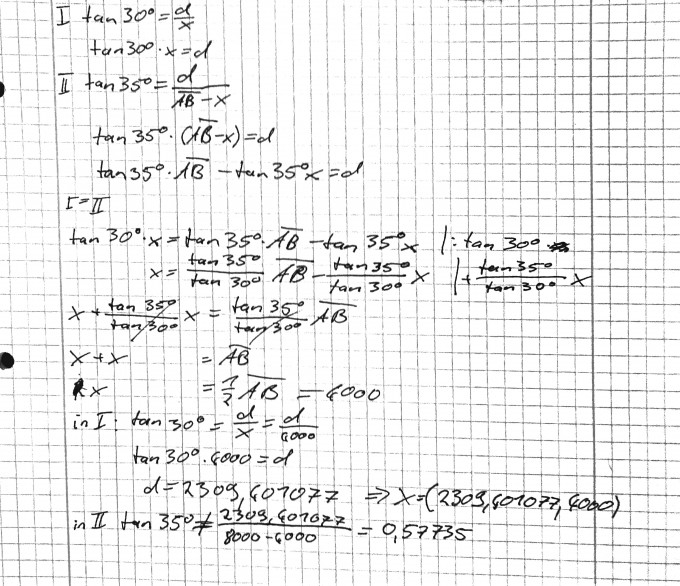 I tan 30° = d/x
tan 30° · x = d
II tan 35° = d/(AB̅ - x)
tan 35° · (AB̅ - x) = d
tan 35° · AB̅ - tan 35° x = d
I = II
tan 30° · x = tan 35° · AB̅ - tan 35° x |: tan 30°
x = tan 35°/tan 30° AB̅ - tan 35°/tan 30° x | + tan 35°/tan 30° x
x + tan 35°/tan 30° x = tan 35°/tan 30° AB̅
x + x = AB̅
x = 1/2 AB̅ = 4000
in I: tan 30° = d/x = d/4000
tan 30° · 4000 = d
d = 2309,401077 ⇒ X = (2309,401077, 4000)
in II tan 35° ≠ 2309,401077/(8000 - 4000) = 0,57735